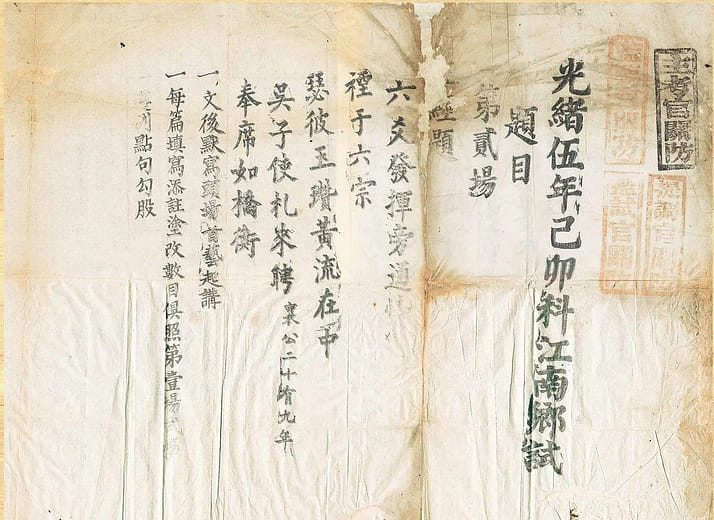 主考官關防
提調官關防
監試官關防
光緒伍年己卯科江南鄉試
題目
第貳場
經題
六爻發揮旁通
禋于六宗
瑟彼玉瓚黃流在中
吳子使札來聘 襄公二十有九年
奉席如橋衡
一文後默寫頭場首藝起講
一每篇填寫添註塗改數目俱照第壹場式
點句勾股